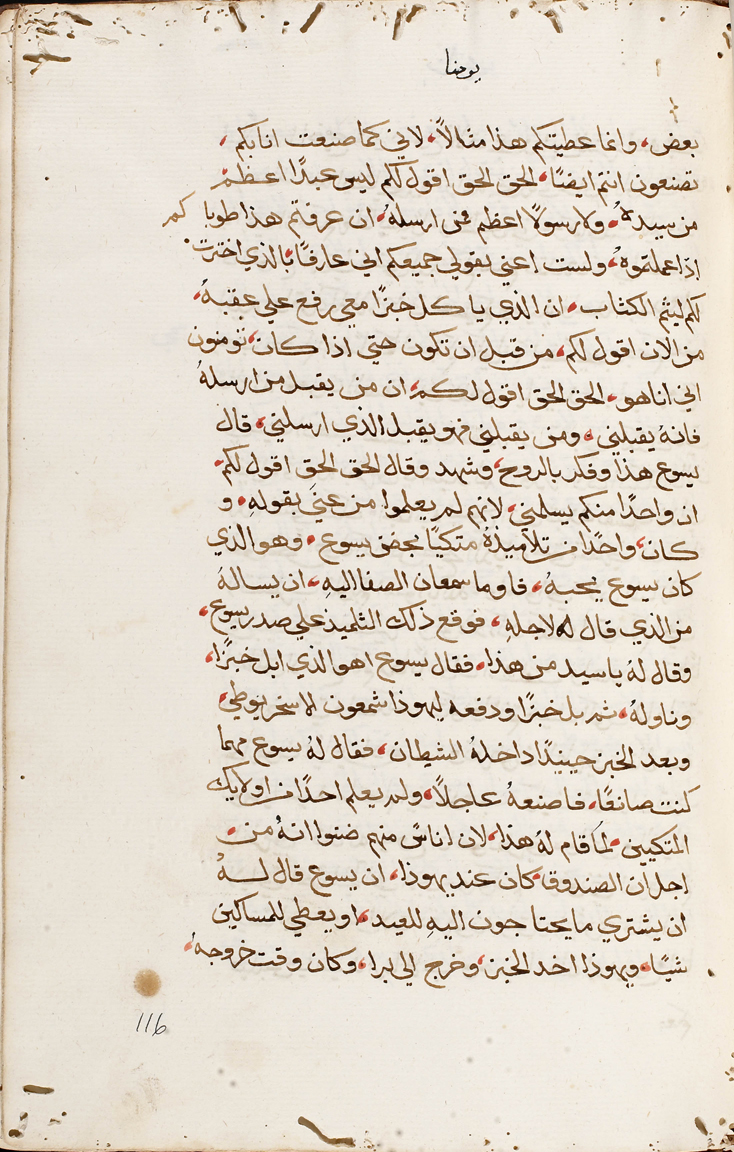 يوحنا
بعض، وانما عطيتكم هذا مثالاً، لاني كما صنعت انا بكم،
تصنعون انتم ايضًا، الحق الحق اقول لكم ليس عبدًا اعظم
من سيدهُ، ولا رسولًا اعظم ممن ارسلهُ، ان عرفتم هذا طوباكم
اذا عملتموهُ، ولست اعني بقولي جميعكم اني عارفًا بالذي اخترت
لكم ليتم الكتاب، ان الذي ياكل خبزًا معي رفع علي عقبهُ،
من الان اقول لكم، من قبل ان تكون حتي اذا كان، تومنون
اني انا هو، الحق الحق اقول لكم، ان من يقبل من ارسلهُ
فانهُ يقبلني، ومن يقبلني فهو يقبل الذي ارسلني، قال
يسوع هذا وفكر بالروح، وشهد وقال الحق الحق اقول لكم،
ان واحدًا منكم يسلمني، لانهم لم يعلموا من عنيَ بقولهِ، و
كان، واحدًا من تلاميذهُ متكيًا بحضن يسوع، وهو الذي
كان يسوع يحبهُ، فاوما سمعان الصفا اليهِ، ان يسالهُ
من الذي قال له لاجلهِ، فوقع ذلك التلميذ علي صدر يسوع،
وقال لهُ يا سيد من هذا، فقال يسوع اهو الذي ابل خبزًا،
وناولهُ، ثم بل خبزًا ودفعه ليهوذا شمعون الاسخريوطي،
وبعد الخبز حينيذًا داخلهُ الشيطان، فقال لهُ يسوع مهما
كنت صانعًا، فاصنعهُ عاجلاً، ولم يعلم احدًا من اولايك
المتكيين، لما قام لهُ هذا، لان اناسً منهم ضنوا انهُ من
اجل ان الصندوق كان عند يهوذا، ان يسوع قال لهُ
ان يشتري ما يحتاجون اليهِ للعيد، او يعطي للمساكين
شيًا، ويهوذا اخد الخبز، وخرج الي برا، وكان وقت خروجهِ،
116